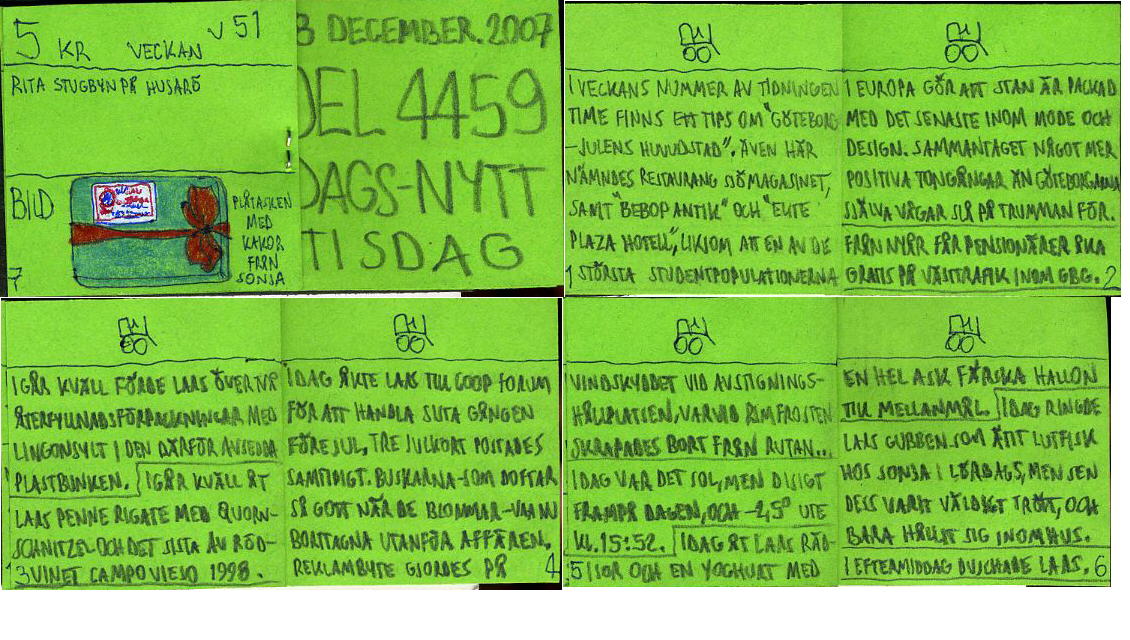 5 KR VECKAN V 51
RITA STUGBYN PÅ HUSARÖ
BILD
PLÅTASKEN
MED
KAKOR
FRÅN
SONJA
7
3 DECEMBER. 2007
DEL 4459
DAGS-NYTT
TISDAG
I VECKANS NUMMER AV TIDNINGEN
TIME FINNS ETT TIPS OM "GÖTEBORG
-JULENS HUVUDSTAD". ÄVEN HÄR
NÄMNDES RESTAURANG SJÖMAGASINET,
SAMT "BEBOP ANTIK" OCH "ELITE
PLAZA HOTELL", LIKSOM ATT EN AV DE
1 STÖRSTA STUDENTPOPULATIONERNA
I EUROPA GÖR ATT STAN ÄR PACKAD
MED DET SENASTE INOM MODE OCH
DESIGN. SAMMANTAGET NÅGOT MER
POSITIVA TONGÅNGAR ÄN GÖTEBORGARNA
SJÄLVA VÅGAR SLÅ PÅ TRUMMAN FÖR.
FRÅN NYÅR FÅR PENSIONÄRER ÅKA
GRATIS PÅ VÄSTTRAFIK INOM GBG. 2
IGÅR KVÄLL FÖRDE LARS ÖVER TVÅ
ÅTERFYLLNADSFÖRPACKNINGAR MED
LINGONSYLT I DEN DÄRFÖR AVSEDDA
PLASTBUNKEN. IGÅR KVÄLL ÅT
LARS PENNE RIGATE MED QUORN-
SCHNITZEL OCH DET SISTA AV RÖD-
3 VINET CAMPO VIEJO 1998.
IDAG ÅKTE LARS TILL COOP FORUM
FÖR ATT HANDLA SISTA GÅNGEN
FÖRE JUL, TRE JULKORT POSTADES
SAMTIDIGT. BUSKARNA-SOM DOFTAR
SÅ GOTT NÄR DE BLOMMAR-VAR NU
BORTTAGNA UTANFÖR AFFÄREN.
REKLAMBYTE GJORDES PÅ 4
VINDSKYDDET VID AVSTIGNINGS-
HÅLLPLATSEN, VARVID RIMFROSTEN
SKRAPADES BORT FRÅN RUTAN...
IDAG VAR DET SOL, MEN DISIGT
FRAMPÅ DAGEN, OCH -2,5° UTE
KL. 15:52. IDAG ÅT LARS RÄD-
5 ISOR OCH EN YOGHURT MED
EN HEL ASK FÄRSKA HALLON
TILL MELLANMÅL. IDAG RINGDE
LARS GUBBEN SOM ÄTIT LUTFISK
HOS SONJA I LÖRDAGS, MEN SEN
DESS VARIT VÄLDIGT TRÖTT, OCH
BARA HÅLLIT SIG INOMHUS.
I EFTERMIDDAG DUSCHADE LARS. 6